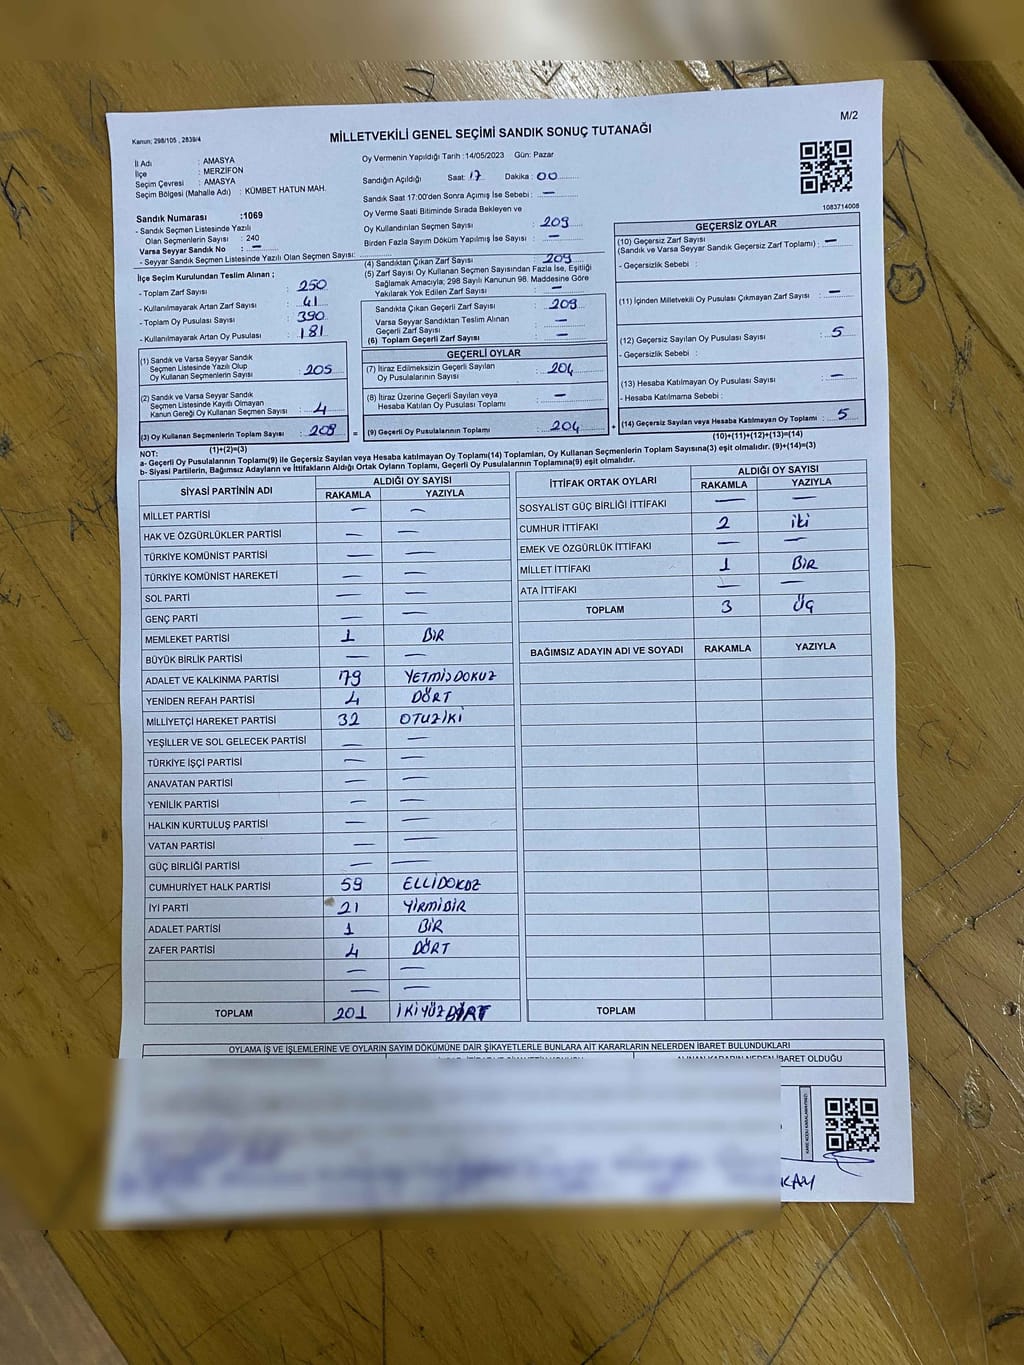 M/2
Kanun; 298/105 , 2839/4
MİLLETVEKİLİ GENEL SEÇİMİ SANDIK SONUÇ TUTANAĞI
İl Adı : AMASYA
İlçe : MERZİFON
Seçim Çevresi : AMASYA
Seçim Bölgesi (Mahalle Adı) : KÜMBET HATUN MAH.
Sandık Numarası :1069
- Sandık Seçmen Listesinde Yazılı
Olan Seçmenlerin Sayısı : 240
Varsa Seyyar Sandık No : —
- Seyyar Sandık Seçmen Listesinde Yazılı Olan Seçmen Sayısı:
İlçe Seçim Kurulundan Teslim Alınan ;
- Toplam Zarf Sayısı : 250
- Kullanılmayarak Artan Zarf Sayısı : 41
- Toplam Oy Pusulası Sayısı : 390
- Kullanılmayarak Artan Oy Pusulası : 181
(1) Sandık ve Varsa Seyyar Sandık
Seçmen Listesinde Yazılı Olup
Oy Kullanan Seçmenlerin Sayısı : 205
(2) Sandık ve Varsa Seyyar Sandık
Seçmen Listesinde Kayıtlı Olmayan
Kanun Gereği Oy Kullanan Seçmen Sayısı : 4
(3) Oy Kullanan Seçmenlerin Toplam Sayısı : 209
(1)+(2)=(3)
Oy Vermenin Yapıldığı Tarih :14/05/2023 Gün: Pazar
Sandığın Açıldığı Saat: 17 Dakika : 00
Sandık Saat 17:00'den Sonra Açımış İse Sebebi : —
Oy Verme Saati Bitiminde Sırada Bekleyen ve
Oy Kullandırılan Seçmen Sayısı : 209
Birden Fazla Sayım Döküm Yapılmış İse Sayısı : —
(4) Sandıktan Çıkan Zarf Sayısı : 209
(5) Zarf Sayısı Oy Kullanan Seçmen Sayısından Fazla İse, Eşitliği
Sağlamak Amacıyla; 298 Sayılı Kanunun 98. Maddesine Göre
Yakılarak Yok Edilen Zarf Sayısı : —
Sandıkta Çıkan Geçerli Zarf Sayısı : 209
Varsa Seyyar Sandıktan Teslim Alınan
Geçerli Zarf Sayısı : —
(6) Toplam Geçerli Zarf Sayısı : —
GEÇERLİ OYLAR
(7) İtiraz Edilmeksizin Geçerli Sayılan
Oy Pusulalarının Sayısı : 204
(8) İtiraz Üzerine Geçerli Sayılan veya
Hesaba Katılan Oy Pusulası Toplamı : —
= (9) Geçerli Oy Pusulalarının Toplamı : 204 +
1083714008
GEÇERSİZ OYLAR
(10) Geçersiz Zarf Sayısı
(Sandık ve Varsa Seyyar Sandık Geçersiz Zarf Toplamı) : —
- Geçersizlik Sebebi :
(11) İçinden Milletvekili Oy Pusulası Çıkmayan Zarf Sayısı : —
(12) Geçersiz Sayılan Oy Pusulası Sayısı : 5
- Geçersizlik Sebebi :
(13) Hesaba Katılmayan Oy Pusulası Sayısı : —
- Hesaba Katılmama Sebebi :
(14) Geçersiz Sayılan veya Hesaba Katılmayan Oy Toplamı : 5
(10)+(11)+(12)+(13)=(14)
NOT:
a- Geçerli Oy Pusulalarının Toplamı(9) ile Geçersiz Sayılan veya Hesaba Katılmayan Oy Toplamı(14) Toplamları, Oy Kullanan Seçmenlerin Toplam Sayısına(3) eşit olmalıdır. (9)+(14)=(3)
b- Siyasi Partilerin, Bağımsız Adayların ve İttifakların Aldığı Ortak Oyların Toplamı, Geçerli Oy Pusulalarının Toplamına(9) eşit olmalıdır.
SİYASİ PARTİNİN ADI ALDIĞI OY SAYISI
RAKAMLA YAZIYLA
MİLLET PARTİSİ — —
HAK VE ÖZGÜRLÜKLER PARTİSİ — —
TÜRKİYE KOMÜNİST PARTİSİ — —
TÜRKİYE KOMÜNİST HAREKETİ — —
SOL PARTİ — —
GENÇ PARTİ — —
MEMLEKET PARTİSİ 1 BİR
BÜYÜK BİRLİK PARTİSİ — —
ADALET VE KALKINMA PARTİSİ 79 YETMİŞDOKUZ
YENİDEN REFAH PARTİSİ 4 DÖRT
MİLLİYETÇİ HAREKET PARTİSİ 32 OTUZİKİ
YEŞİLLER VE SOL GELECEK PARTİSİ — —
TÜRKİYE İŞÇİ PARTİSİ — —
ANAVATAN PARTİSİ — —
YENİLİK PARTİSİ — —
HALKIN KURTULUŞ PARTİSİ — —
VATAN PARTİSİ — —
GÜÇ BİRLİĞİ PARTİSİ — —
CUMHURİYET HALK PARTİSİ 59 ELLİDOKUZ
İYİ PARTİ 21 YİRMİBİR
ADALET PARTİSİ 1 BİR
ZAFER PARTİSİ 4 DÖRT
— —
— —
TOPLAM 201 İKİYÜZ
İTTİFAK ORTAK OYLARI ALDIĞI OY SAYISI
RAKAMLA YAZIYLA
SOSYALİST GÜÇ BİRLİĞİ İTTİFAKI — —
CUMHUR İTTİFAKI 2 iki
EMEK VE ÖZGÜRLÜK İTTİFAKI — —
MİLLET İTTİFAKI 1 BİR
ATA İTTİFAKI — —
TOPLAM 3 Üç
BAĞIMSIZ ADAYIN ADI VE SOYADI RAKAMLA YAZIYLA
TOPLAM
OYLAMA İŞ VE İŞLEMLERİNE VE OYLARIN SAYIM DÖKÜMÜNE DAİR ŞİKAYETLERLE BUNLARA AİT KARARLARIN NELERDEN İBARET BULUNDUKLARI
ALINAN KARARIN NEDEN İBARET OLDUĞU